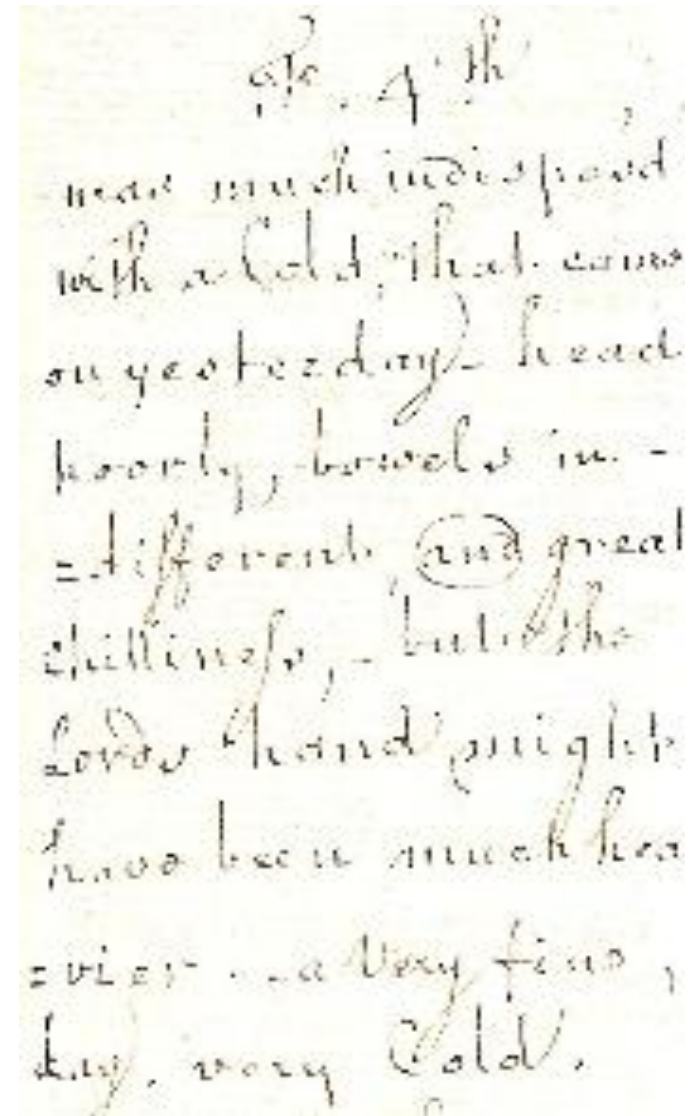 4th
was much indispos'd
with a Cold, that came
on yesterday - head
poorly, bowels in -
=different, and great
chilliness, - but the
Lords hand might
have been much hea
=vier - a very fine,
day, very Cold.